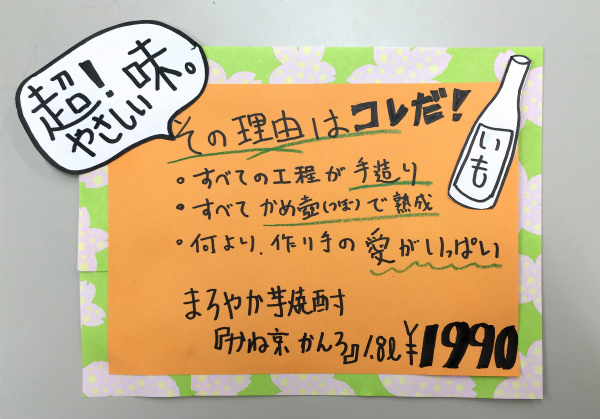 超!
やさしい味。
その理由はコレだ!
・すべての工程が手造り
・すべてかめ壺(つぼ)で熟成
・何より、作り手の愛がいっぱい
まろやか芋焼酎
『みね京かんろ』1.8ℓ ¥1990
いも